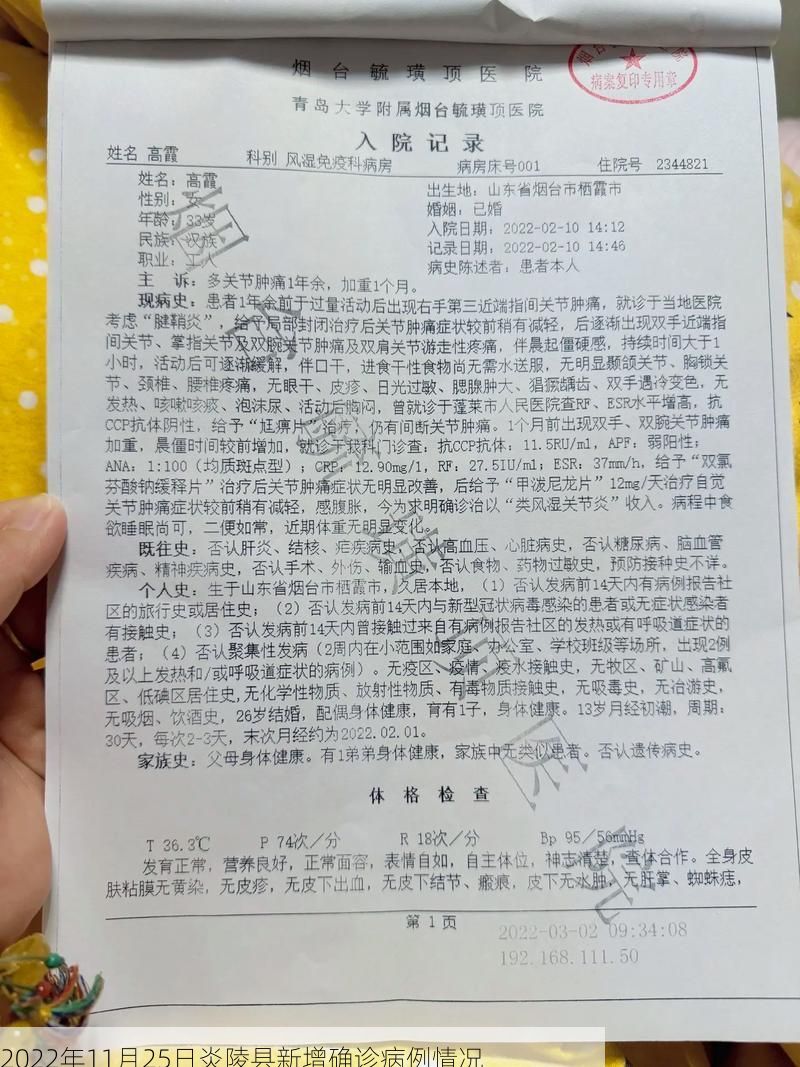 病案复印专用章
烟台毓璜顶医院
青岛大学附属烟台毓璜顶医院
入院记录
姓名 高霞 科别 风湿免疫科病房 病房床号001 住院号 2344821
姓名：高霞 出生地：山东省烟台市栖霞市
性别：女 婚姻：已婚
年龄：33岁 入院日期：2022-02-10 14:12
民族：汉族 记录日期：2022-02-10 14:46
职业：工人 病史陈述者：患者本人
主 诉：多关节肿痛1年余，加重1个月。
现病史：患者1年余前于过量活动后出现右手第三近端指间关节肿痛，就诊于当地医院
考虑“腱鞘炎”，给予局部封闭治疗后关节肿痛症状较前稍有减轻，后逐渐出现双手近端指
间关节、掌指关节及双腕关节肿痛及双肩关节游走性疼痛，伴晨起僵硬感，持续时间大于1
小时，活动后可逐渐缓解，伴口干，进食干性食物尚无需水送服，无明显颞颌关节、胸锁关
节、颈椎、腰椎疼痛，无眼干、皮疹、日光过敏、腮腺肿大、猖獗龋齿、双手遇冷变色，无
发热、咳嗽咳痰、泡沫尿、活动后胸闷，曾就诊于蓬莱市人民医院查RF、ESR水平增高，抗
CCP抗体阴性，给予“尪痹片”治疗，仍有间断关节肿痛。1个月前出现双手、双腕关节肿痛
加重，晨僵时间较前增加，就诊于我科门诊查：抗CCP抗体：11.5RU/ml，APF：弱阳性；
ANA：1:100（均质斑点型）；CRP：12.90mg/l，RF：27.5IU/ml；ESR：37mm/h，给予“双氯
芬酸钠缓释片”治疗后关节肿痛症状无明显改善，后给予“甲泼尼龙片”12mg/天治疗自觉
关节肿痛症状较前稍有减轻，感腹胀，今为求明确诊治以“类风湿关节炎”收入。病程中食
欲睡眠尚可，二便如常，近期体重无明显变化。
既往史：否认肝炎、结核、疟疾病史，否认高血压、心脏病史，否认糖尿病、脑血管
疾病、精神疾病史，否认手术、外伤、输血史，否认食物、药物过敏史，预防接种史不详。
个人史：生于山东省烟台市栖霞市，久居本地，（1）否认发病前14天内有病例报告社
区的旅行史或居住史；（2）否认发病前14天内与新型冠状病毒感染的患者或无症状感染者
有接触史；（3）否认发病前14天内曾接触过来自有病例报告社区的发热或有呼吸道症状的
患者；（4）否认聚集性发病（2周内在小范围如家庭、办公室、学校班级等场所，出现2例
及以上发热和/或呼吸道症状的病例）。无疫区、疫情、疫水接触史，无牧区、矿山、高氟
区、低碘区居住史,无化学性物质、放射性物质、有毒物质接触史，无吸毒史，无冶游史，
无吸烟、饮酒史，26岁结婚，配偶身体健康，育有1子，身体健康。13岁月经初潮，周期：
30天，每次2-3天，末次月经约为2022.02.01。
家族史：父母身体健康。有1弟弟身体健康，家族中无类似患者。否认遗传病史。
体格检查
T 36.3℃ P 74次/分 R 18次/分 Bp 95/56mmHg
发育正常，营养良好，正常面容，表情自如，自主体位，神志清楚，查体合作。全身皮
肤粘膜无黄染，无皮疹，无皮下出血，无皮下结节、瘢痕，皮下无水肿，无肝掌、蜘蛛痣，
第 1 页
2022-03-02 09:34:08
192.168.111.50
烟台毓璜顶医院
2022年11月25日炎陵县新增确诊病例情况